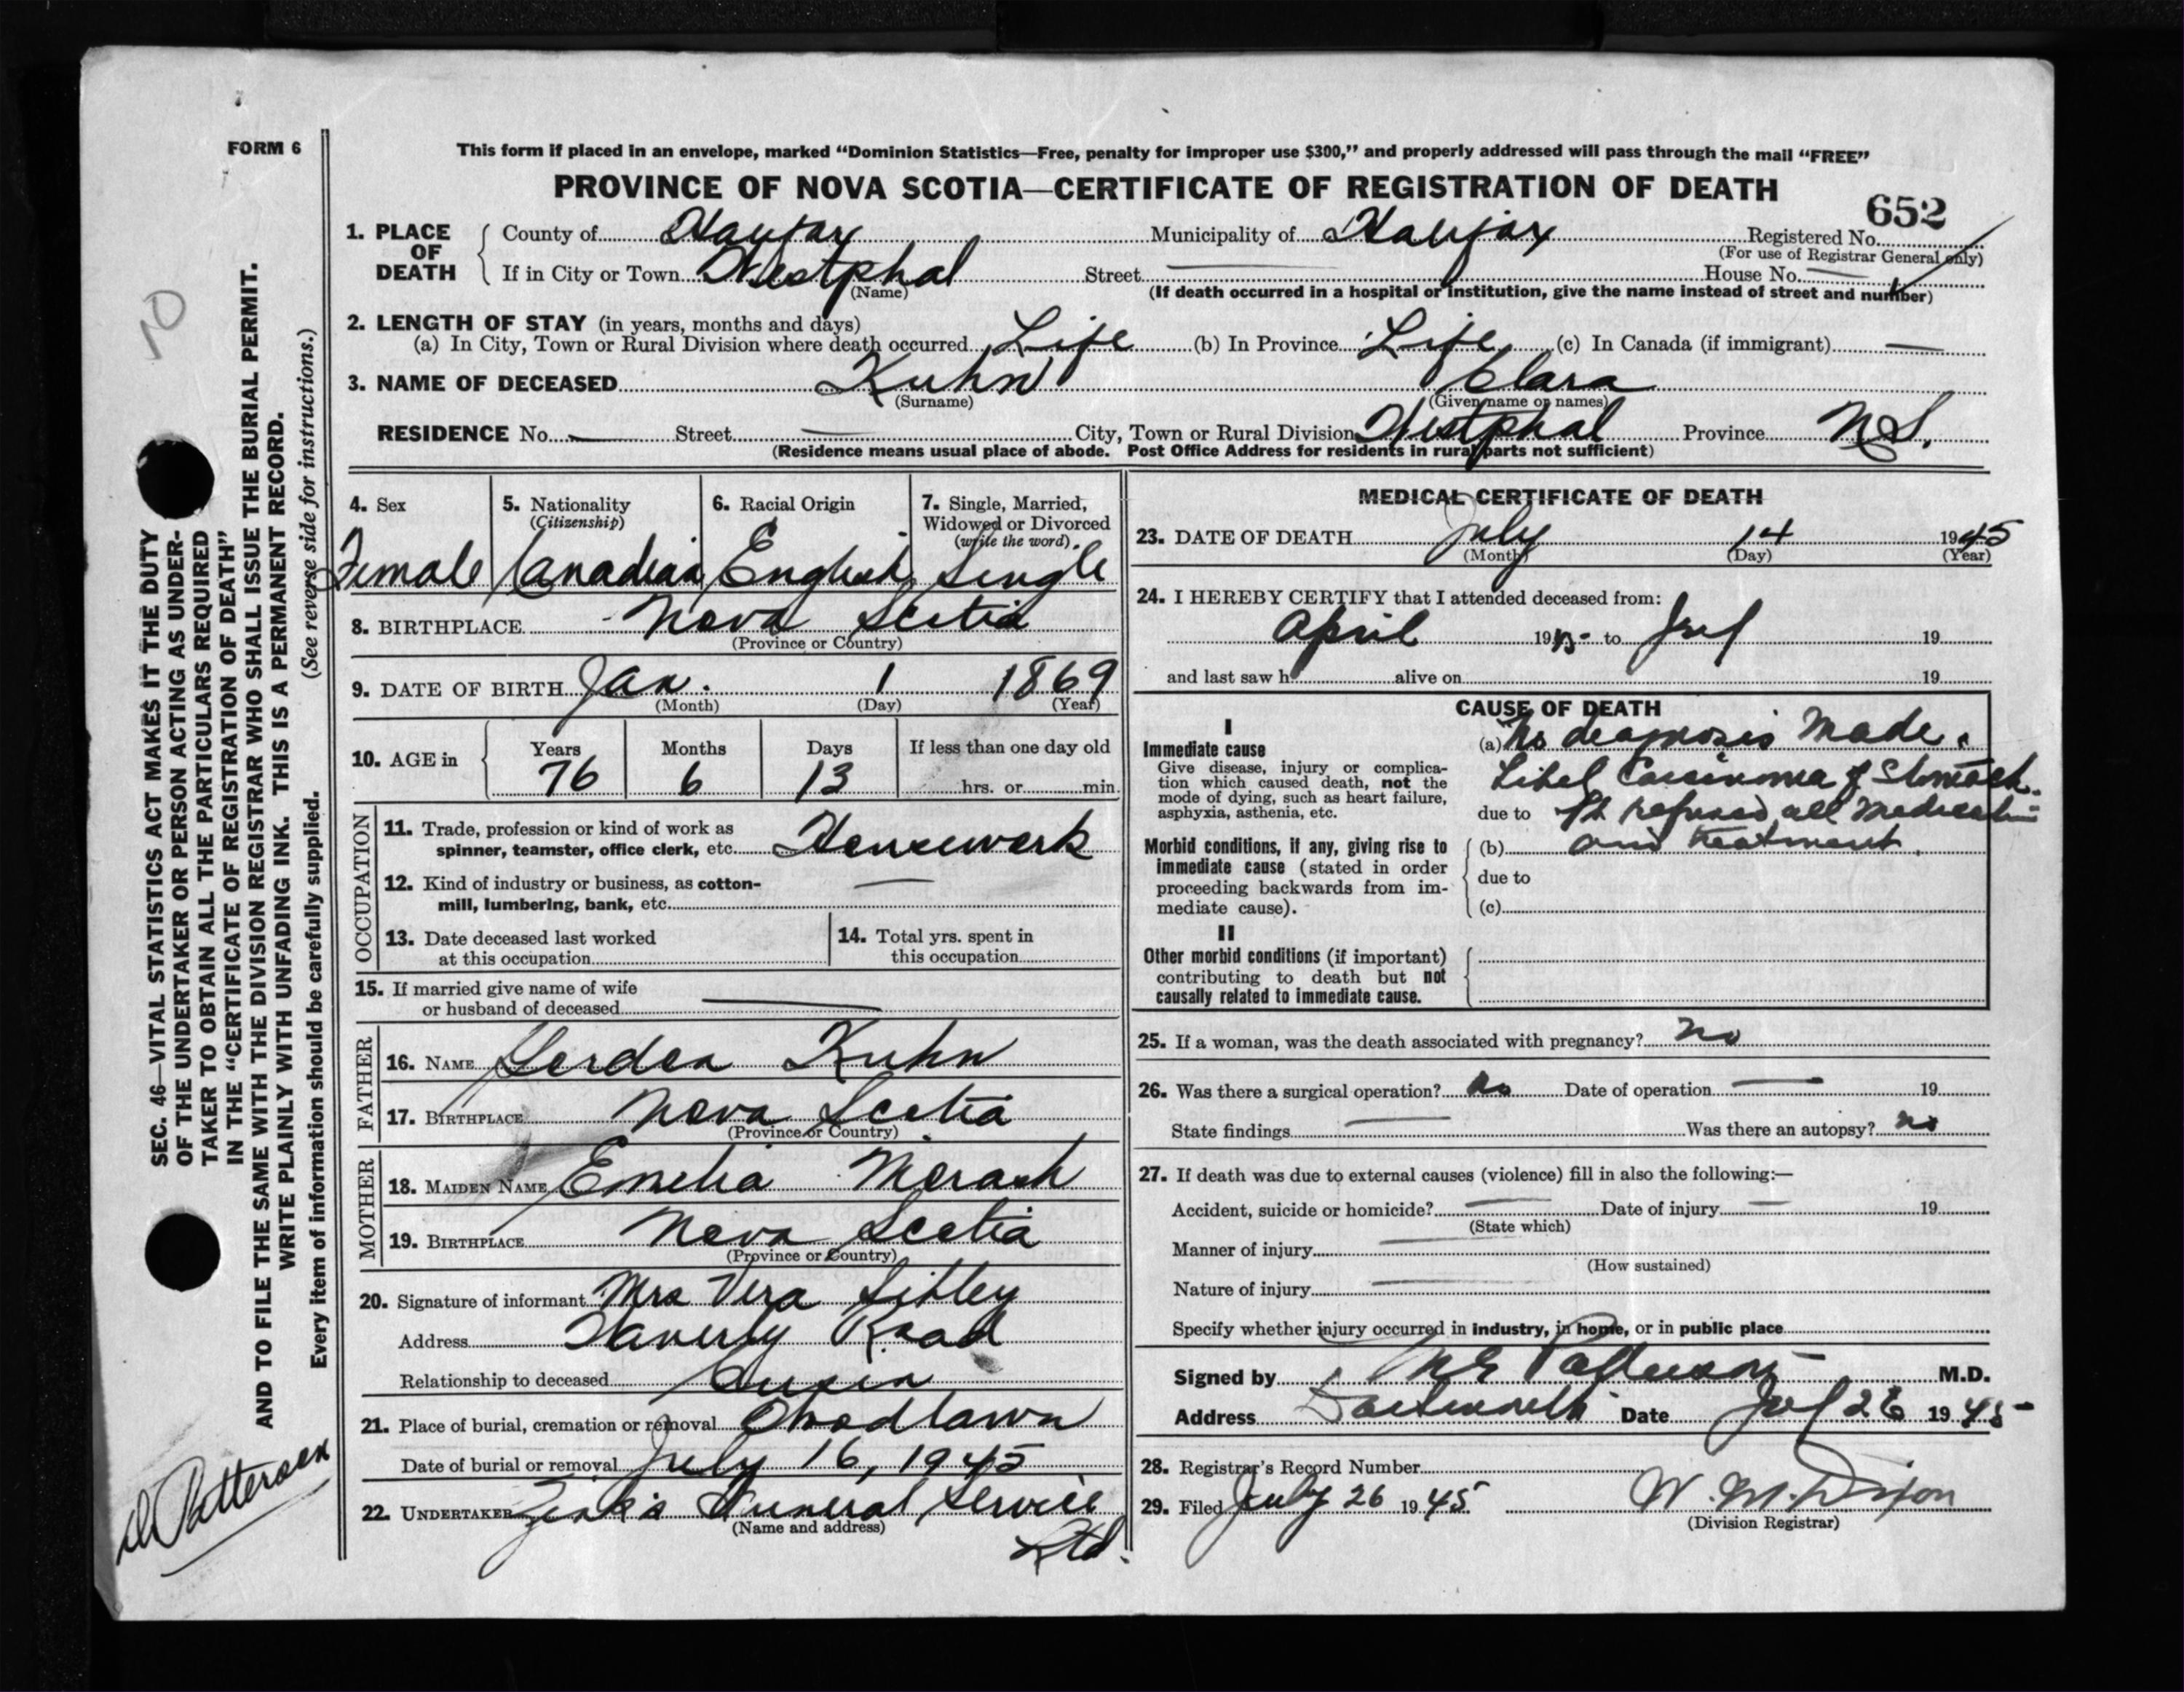 FORM 6
This form if placed in an envelope, marked “Dominion Statistics—Free, penalty for improper use $300,” and properly addressed will pass through the mail “FREE”
PROVINCE OF NOVA SCOTIA—CERTIFICATE OF REGISTRATION OF DEATH
652
1. PLACE OF DEATH County of Halifax Municipality of Halifax Registered No.
(For use of Registrar General only)
If in City or Town Westphal Street — House No. —
(Name) (If death occurred in a hospital or institution, give the name instead of street and number)
2. LENGTH OF STAY (in years, months and days)
(a) In City, Town or Rural Division where death occurred Life (b) In Province Life (c) In Canada (if immigrant) —
3. NAME OF DECEASED Kuhn Clara
(Surname) (Given name or names)
RESIDENCE No. — Street — City, Town or Rural Division Westphal Province N.S.
(Residence means usual place of abode. Post Office Address for residents in rural parts not sufficient)
4. Sex 5. Nationality (Citizenship) 6. Racial Origin 7. Single, Married, Widowed or Divorced (write the word)
Female Canadian English Single
8. BIRTHPLACE Nova Scotia
(Province or Country)
9. DATE OF BIRTH Jan. 1 1869
(Month) (Day) (Year)
10. AGE in Years Months Days If less than one day old
76 6 13 hrs. or min.
OCCUPATION
11. Trade, profession or kind of work as
spinner, teamster, office clerk, etc. Housework
12. Kind of industry or business, as cotton-
mill, lumbering, bank, etc. —
13. Date deceased last worked
at this occupation
14. Total yrs. spent in
this occupation
15. If married give name of wife
or husband of deceased —
FATHER
16. NAME Kuhn
17. BIRTHPLACE Nova Scotia
(Province or Country)
MOTHER
18. MAIDEN NAME Emelia Morash
19. BIRTHPLACE Nova Scotia
(Province or Country)
20. Signature of informant Mrs Vera Sibley
Address Waverly Road
Relationship to deceased
21. Place of burial, cremation or removal Woodlawn
Date of burial or removal July 16, 1945
22. UNDERTAKER Zink's Funeral Service
(Name and address) Ltd.
MEDICAL CERTIFICATE OF DEATH
23. DATE OF DEATH July 14 1945
(Month) (Day) (Year)
24. I HEREBY CERTIFY that I attended deceased from:
April 1945 to July 19
and last saw h alive on 19
CAUSE OF DEATH
I
Immediate cause
Give disease, injury or complica-
tion which caused death, not the
mode of dying, such as heart failure,
asphyxia, asthenia, etc.
(a) No diagnosis made.
Carcinoma of Stomach.
due to Pt refused all medication
Morbid conditions, if any, giving rise to
immediate cause (stated in order
proceeding backwards from im-
mediate cause).
(b) and treatment.
due to
(c)
II
Other morbid conditions (if important)
contributing to death but not
causally related to immediate cause.
25. If a woman, was the death associated with pregnancy? No
26. Was there a surgical operation? No Date of operation — 19
State findings — Was there an autopsy? No
27. If death was due to external causes (violence) fill in also the following:—
Accident, suicide or homicide? — Date of injury — 19
(State which)
Manner of injury —
(How sustained)
Nature of injury —
Specify whether injury occurred in industry, in home, or in public place
Signed by Patterson M.D.
Address Dartmouth Date July 26 1945
28. Registrar's Record Number
29. Filed July 26 1945 W. M. Dixon
(Division Registrar)
SEC. 46—VITAL STATISTICS ACT MAKES IT THE DUTY
OF THE UNDERTAKER OR PERSON ACTING AS UNDER-
TAKER TO OBTAIN ALL THE PARTICULARS REQUIRED
IN THE “CERTIFICATE OF REGISTRATION OF DEATH”
AND TO FILE THE SAME WITH THE DIVISION REGISTRAR WHO SHALL ISSUE THE BURIAL PERMIT.
WRITE PLAINLY WITH UNFADING INK. THIS IS A PERMANENT RECORD.
Every item of information should be carefully supplied. (See reverse side for instructions.)
10
Patterson